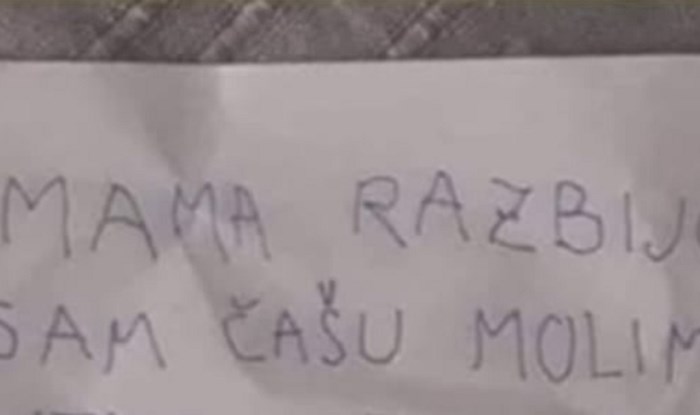 MAMA RAZBIJO
SAM ČAŠU MOLIM